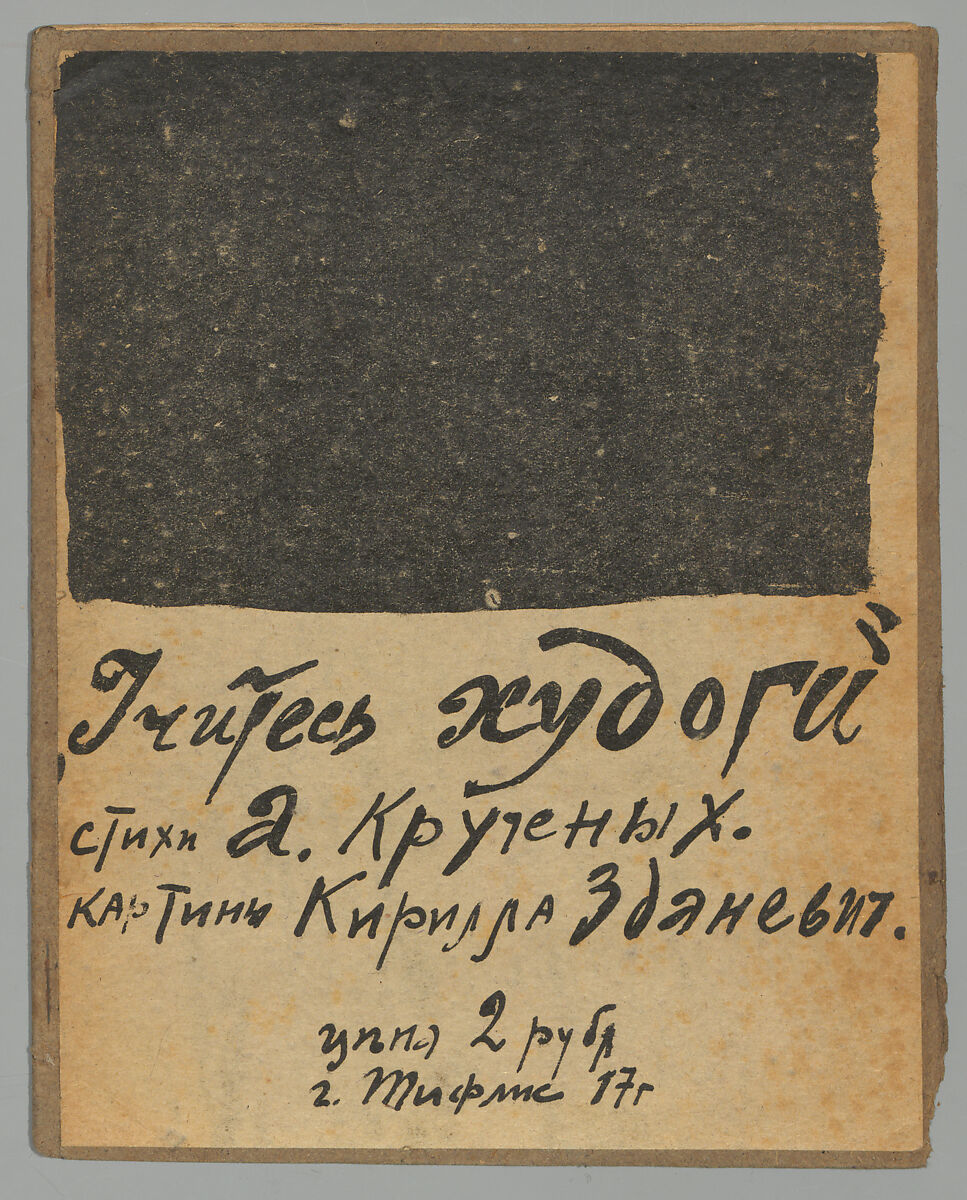 Учитесь худоги
стихи а. Крученых.
картины Кирилла Зданевич.
цѣна 2 рубл
г. Тифлис 17 г